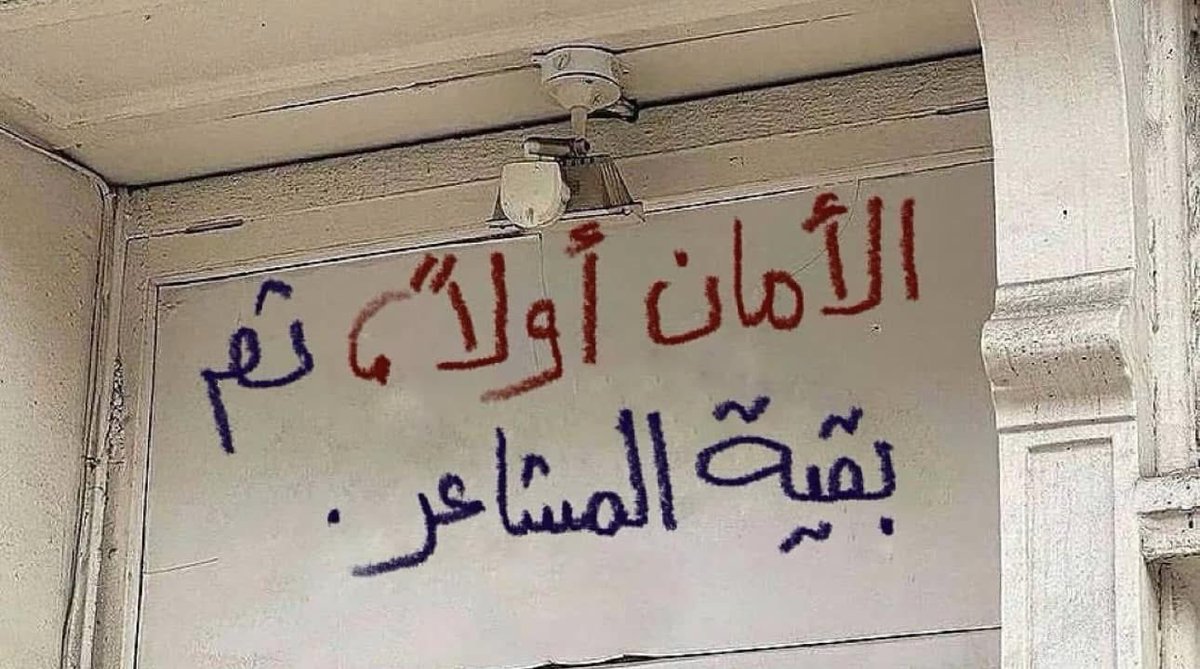 الأمان أولاً، ثم
بقية المشاعر.